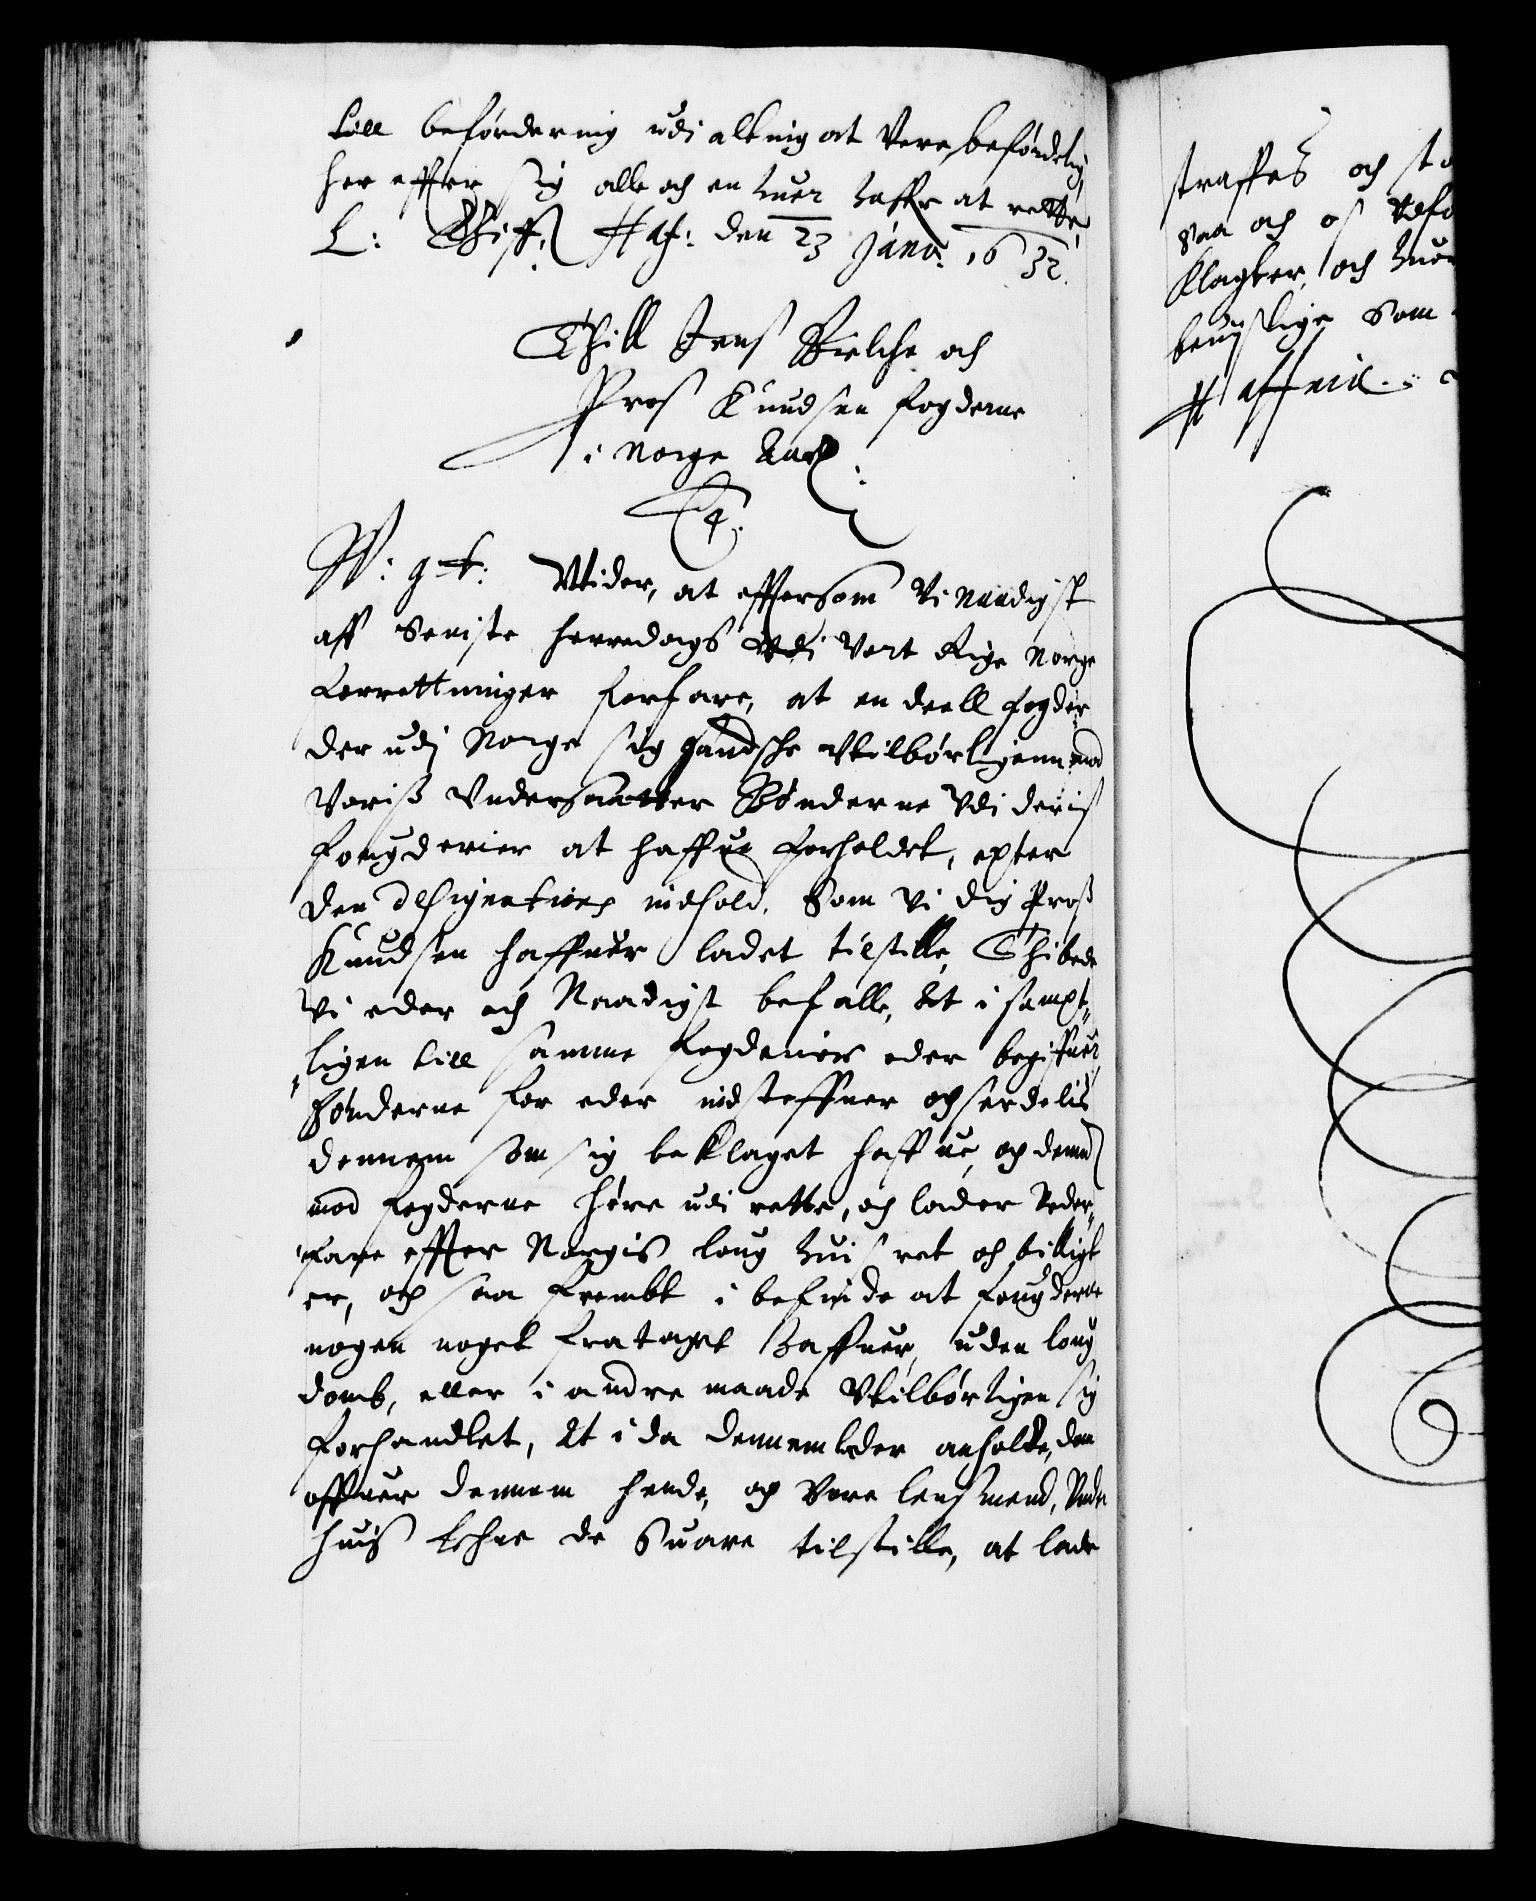 till befordering udi alting at Vere beforderlig
her effter sig alle och en huer haffr at rette
L: Giff: Haf: den 23 Janv: 1632.
Thill Jens Bielche och
Pros Knudsen fogderne
i Norge
W: g t: Viider, at effter som Vi Naadigst
aff Seniste herredags Vdi Vort Rige Norge
forrettninger forfare, at en deell fogder
der udj Norge sig gandsche Vtilbørligenn mod
Voriss Undersaatter Bønderne Vdi deris
fougderier at haffue forholdet, epter
den designations indhold, Som Vi dig Pross
Knudsen haffuer ladet tilstille, Thi bede
Vi eder och Naadigst befalle, At i sampt
ligen till samme fogderier eder begiffuer
Bønderne for eder indsteffner och serdelis
dennem som sig beklaget haffue, och dennem
mod fogderne høre udi rette, och lader Veder
fare effter Norgis loug huis ret och billigt
er, och saa frembt i befinde at fougderne
nogen noget frataget haffuer, uden loug
domb, eller i andre maade Vtilbørligen sig
forhandlet, At i da dennem lader anholde, den
offuer dennem hende, och Vore lensmend, Under
huis lehne de Suare tilstille, at lade
straffes och
saa och os
klagter, och
beuislige Som
Haffniæ